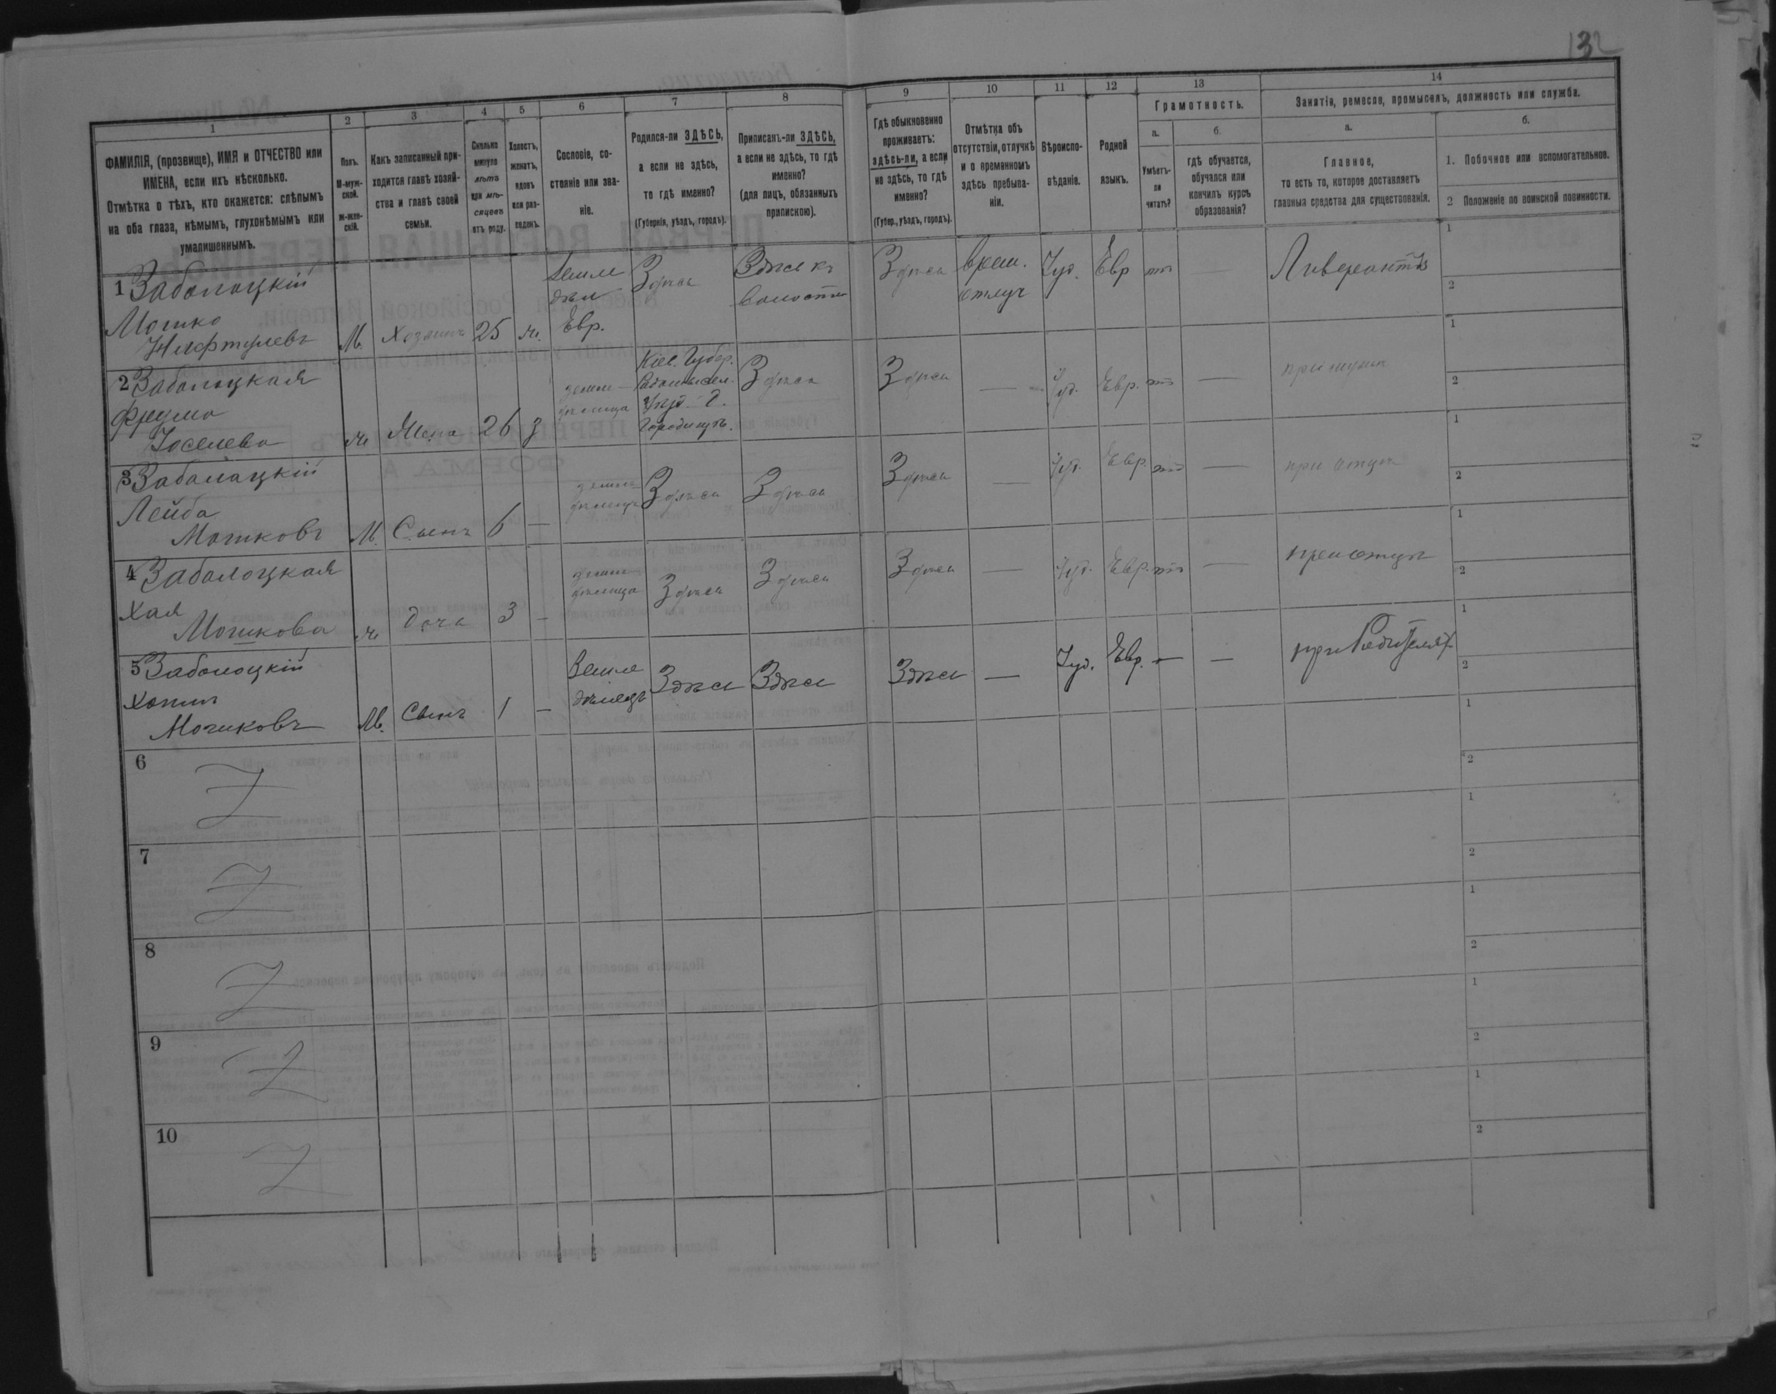 132
1
2
3
4
5
6
7
8
9
10
11
12
13
14
ФАМИЛІЯ, (прозвище), ИМЯ и ОТЧЕСТВО или
ИМЕНА, если ихъ нѣсколько.
Отмѣтка о тѣхъ, кто окажется: слѣпымъ
на оба глаза, нѣмымъ, глухонѣмымъ или
умалишеннымъ.
Полъ.
М-муж-
ской.
Ж-жен-
скій.
Какъ записанный при-
ходится главѣ хозяй-
ства и главѣ своей
семьи.
Сколько
минуло
лѣтъ
или мѣ-
сяцевъ
отъ роду.
Холостъ,
женатъ,
вдовъ
или раз-
веденъ.
Сословіе, со-
стояніе или зва-
ніе.
Родился-ли ЗДѢСЬ,
а если не здѣсь,
то гдѣ именно?
(Губернія, уѣздъ, городъ).
Приписанъ-ли ЗДѢСЬ,
а если не здѣсь, то гдѣ
именно?
(для лицъ, обязанныхъ
припискою).
Гдѣ обыкновенно
проживаетъ:
здѣсь-ли, а если
не здѣсь, то гдѣ
именно?
(Губер., уѣздъ, городъ).
Отмѣтка объ
отсутствіи, отлучкѣ
и о временномъ
здѣсь пребыва-
ніи.
Вѣроиспо-
вѣданіе.
Родной
языкъ.
Грамотность.
а.
Умѣетъ-
ли
читать?
б.
гдѣ обучается,
обучался или
кончилъ курсъ
образованія?
Занятіе, ремесло, промыселъ, должность или служба.
а.
Главное,
то есть то, которое доставляетъ
главныя средства для существованія.
б.
1. Побочное или вспомогательное.
2 Положеніе по воинской повинности.
1 Заболоцкій
Мошко
Нафтулевъ
М.
Хозяинъ
25
ж.
Земле
дѣл
Евр.
Здѣсь
Здѣсь къ
волости
Здѣсь
врем.
отлуч
Іуд.
Евр
—
Ливерантъ
1
2
2 Заболоцкая
Фрума
Іоселева
ж
Жена
26
З
Кіев. Губер.
Городищѣ.
Здѣсь
Здѣсь
—
Іуд.
Евр.
—
при мужѣ
1
2
3 Заболоцкій
Лейба
Мошковъ
М.
Сынъ
6
—
Здѣсь
Здѣсь
Здѣсь
—
Іуд.
Евр.
—
при отцѣ
1
2
4 Заболоцкая
Хая
Мошкова
ж
дочь
3
—
Здѣсь
Здѣсь
Здѣсь
—
Іуд.
Евр.
—
при отцѣ
1
2
5 Заболоцкій
Мошковъ
М.
Сынъ
1
—
Земле
дѣлецъ
Здѣсь
Здѣсь
Здѣсь
—
Іуд.
Евр.
—
—
при Родителях
1
2
6
1
2
7
1
2
8
1
2
9
1
2
10
1
2